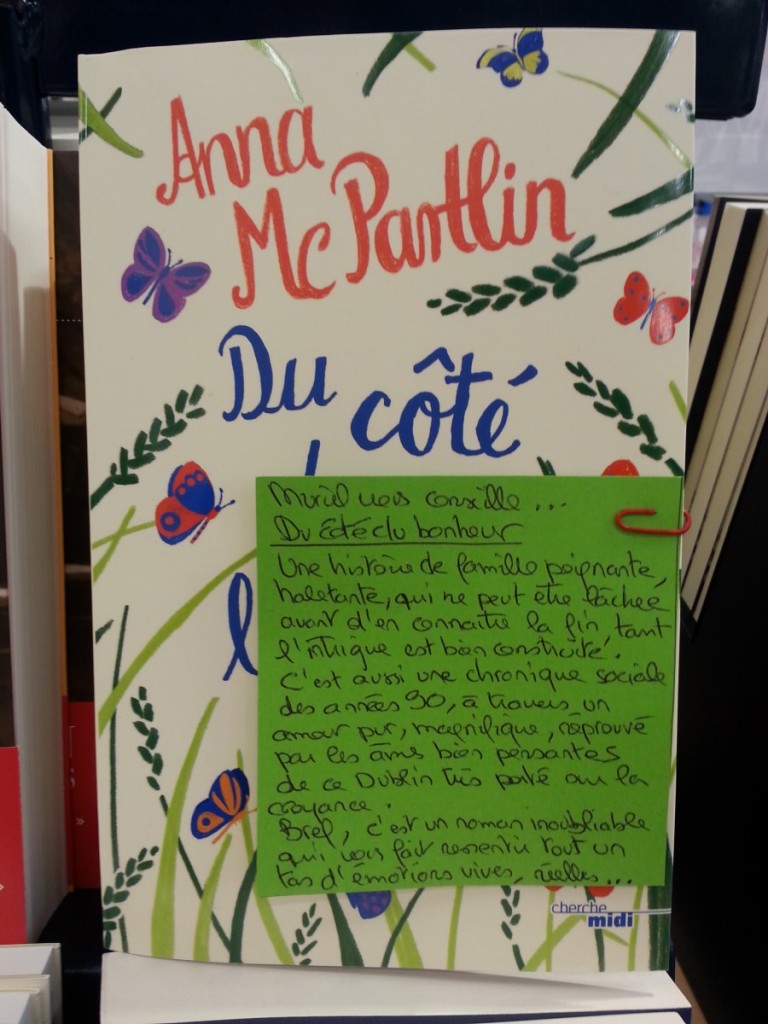 Anna
McPartlin
Du côté
l
Muriel vous conseille ...
Du côté du bonheur
Une histoire de famille poignante,
haletante, qui ne peut être lâchée
avant d'en connaître la fin, tant
l'intrigue est bien construite.
C'est aussi une chronique sociale
des années 90, à travers un
amour pur, magnifique, réprouvé
par les âmes bien pensantes
de ce Dublin très porté sur la
croyance.
Bref, c'est un roman inoubliable
qui vous fait ressentir tout un
tas d'émotions vives, réelles...
cherche
midi